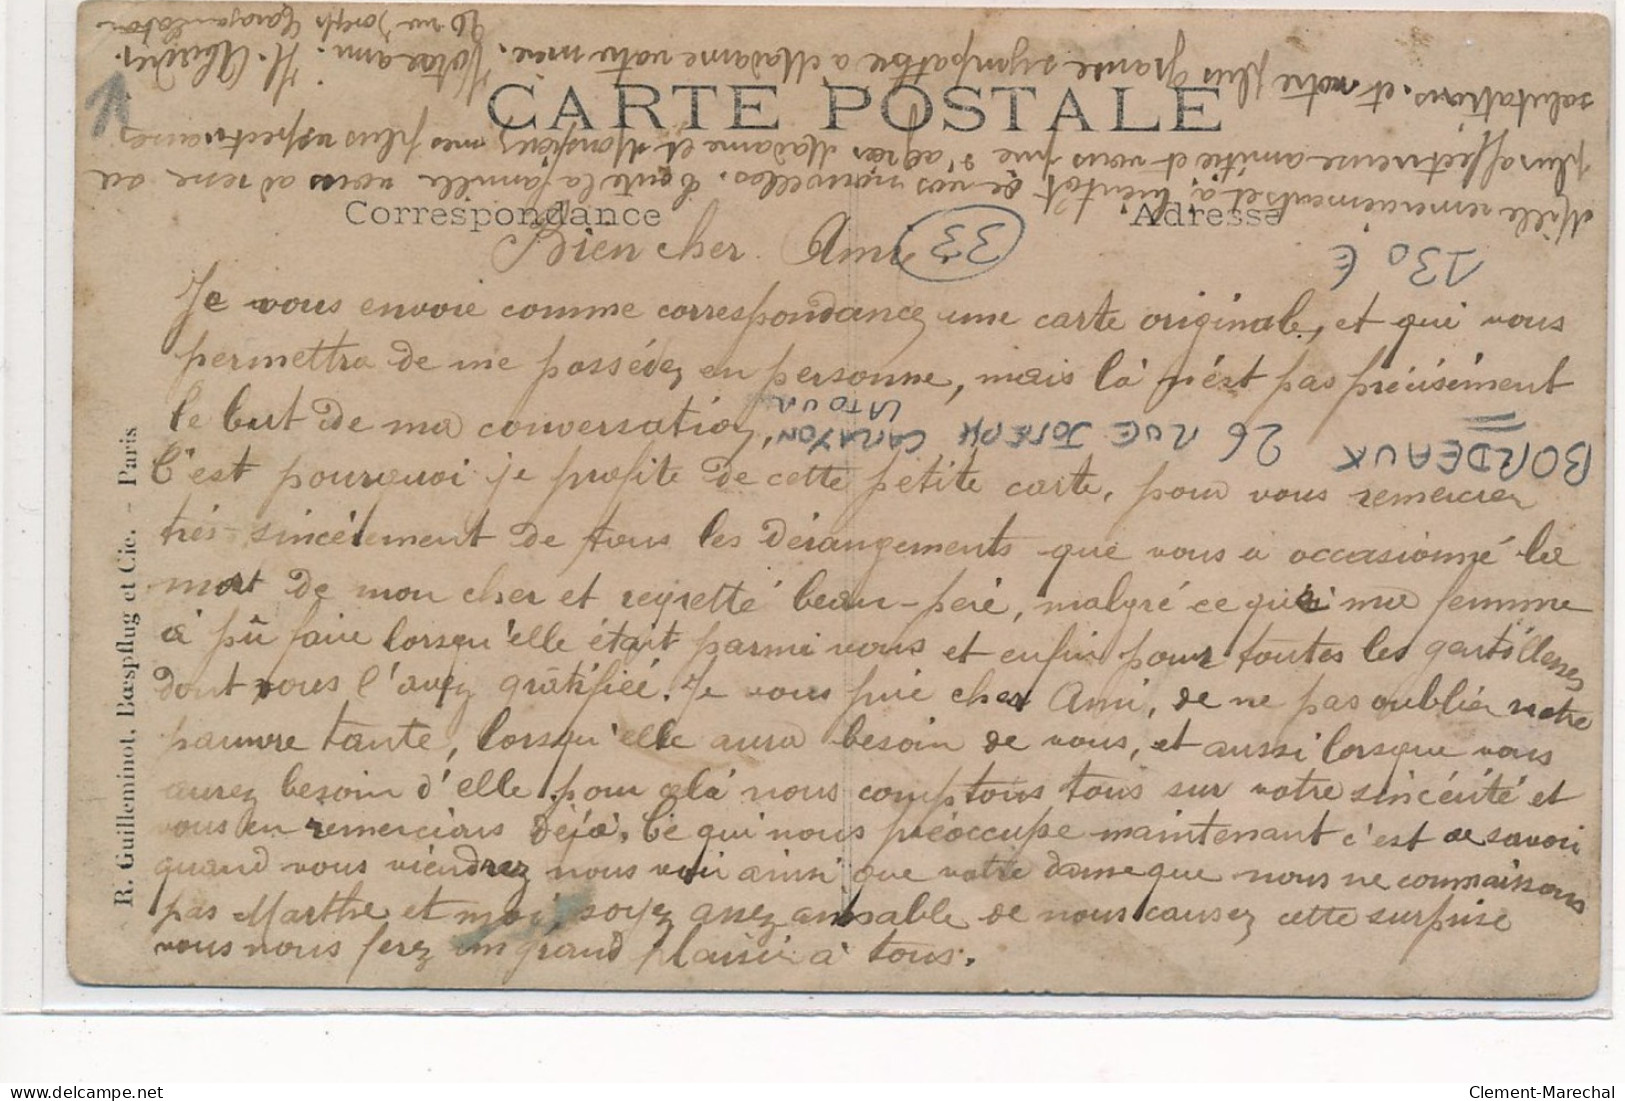 CARTE POSTALE
Correspondance
Adresse
Bien cher Ami
Je vous envoie comme correspondance, une carte originale, et qui vous
permettra de me posséder en personne, mais là n'est pas précisément
le but de ma conversation,
C'est pourquoi je profite de cette petite carte, pour vous remercier
très sincèrement de tous les dérangements que vous a occasionné la
mort de mon cher et regretté beau-père, malgré ce que ma femme
à pû faire lorsqu'elle était parmi vous et enfin pour toutes les gentillesses
dont vous l'avez gratifiée. Je vous prie cher Ami, de ne pas oublier notre
pauvre tante, lorsqu'elle aura besoin de vous, et aussi lorsque vous
aurez besoin d'elle, pour celà nous comptons tous sur votre sincérité et
vous en remercions déjà. Ce qui nous préoccupe maintenant c'est de savoir
quand vous viendrez nous voir ainsi que votre dame que nous ne connaissons
pas Marthe et moi, soyez assez aimable de nous causer cette surprise
vous nous ferez un grand plaisir à tous.
Mille remerciements et à bientôt de vos nouvelles. Toute la famille vous adresse sa
plus affectueuse amitié et vous prie d'agréer Madame et Monsieur mes plus respectueuses
salutations. et notre plus grande sympathie a Madame votre mère. Votre ami. H.
26 rue Joseph Carayon Latour
33
130 €
BORDEAUX
26 RUE JOSEPH CARAYON
LATOUR
R. Guilleminot, Bœspflug et Cie. - Paris
Clement-Marechal